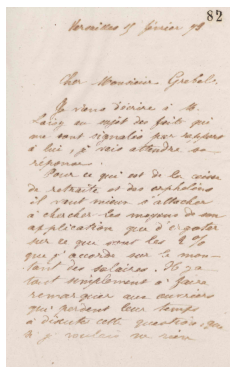 82
Versailles 25 février 98
Cher Monsieur Grebel,
Je viens d'écrire à M.
Leroy au sujet des faits qui
me sont signalés par rapport
à lui, je vais attendre sa
réponse.
Pour ce qui est de la caisse
de retraite et des orphelins
il vaut mieux s'attacher
à chercher les moyens de son
application que d'ergoter
sur ce que sont les 2 %
que j'accorde sur le mon-
tant des salaires. Il y a
tout simplement à faire
remarquer aux ouvriers
qui perdent leur temps
à discuter cette question, que
si je voulais ne rien